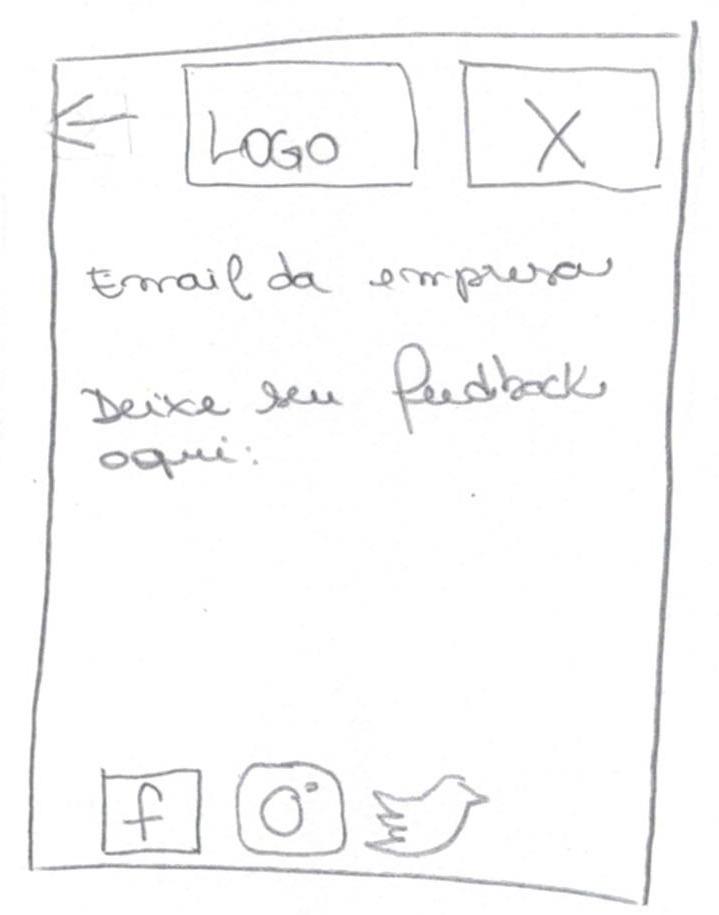 LOGO X
Email da empresa
Deixe seu feedback
aqui:
f